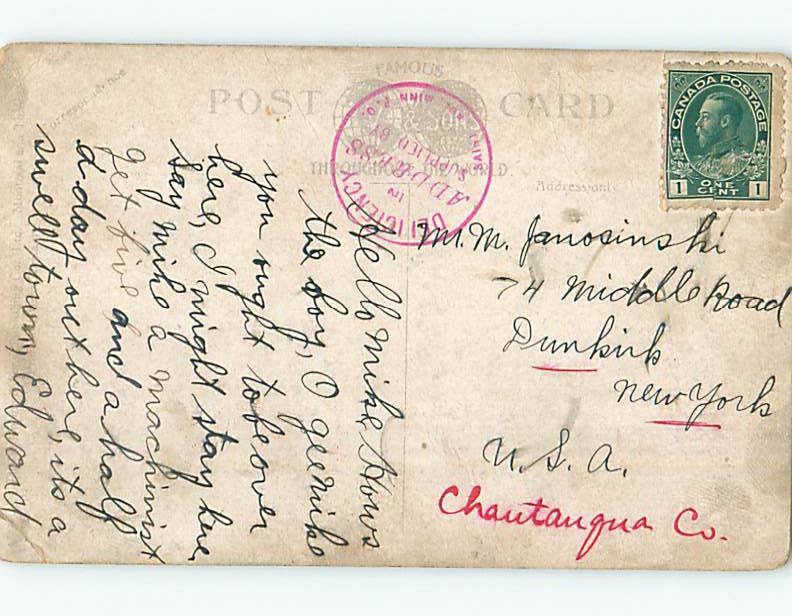 FAMOUS
POST CARD
THROUGHOUT THE WORLD.
Correspondence
Address only
DEFICIENCY
IN
ADDRESS
SUPPLIED BY
SAINT PAUL, MINN. P.O.
CANADA POSTAGE
1 ONE CENT 1
Mr. M. Janosinski
74 Middle Road
Dunkirk
New York
U. S. A.
Chautauqua Co.
Hello Mike, Hows
the boy, O gee mike
you ought to be over
here, I might stay here,
say mike a machinist
get five and a half
a day out here, its a
swell town, Edward